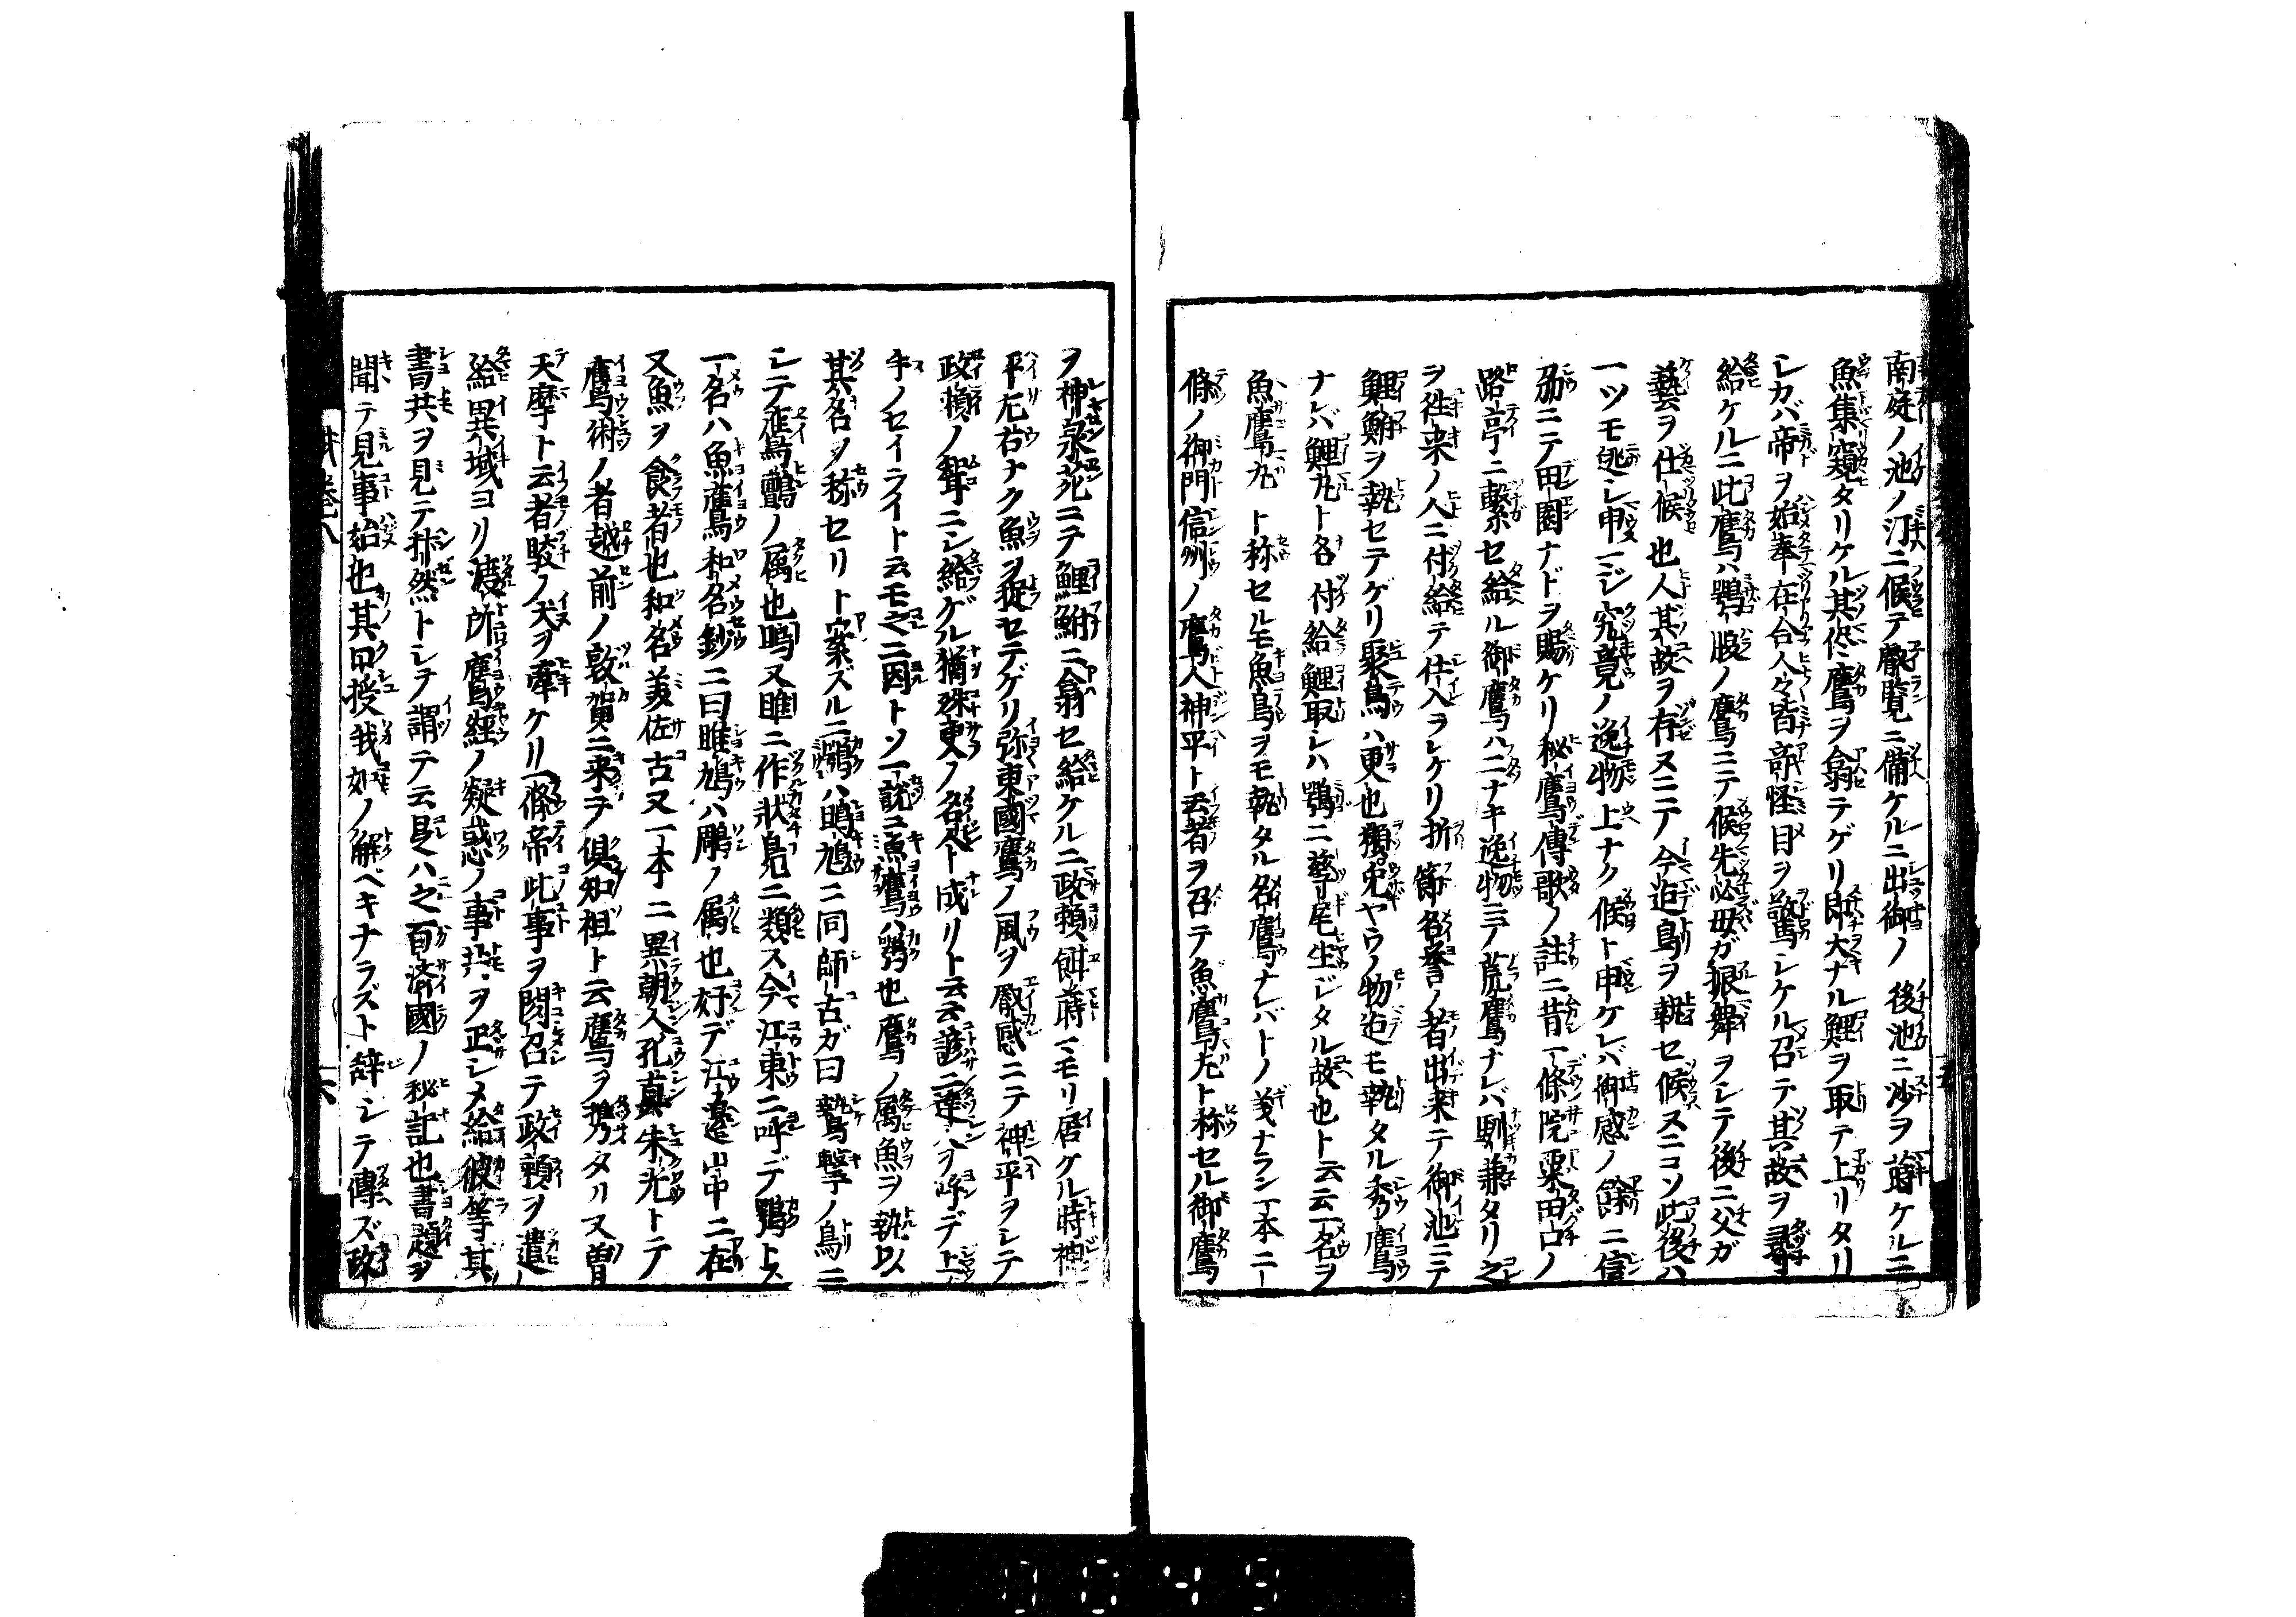 南庭ノ池ノ汀ニ候テ叡覧ニ備ケルニ出御ノ後池ニ沙ヲ蒔ケルニ
魚集窺タリケル其侭鷹ヲ翕テゲリ即大ナル鯉ヲ取テ上リタリ
シカバ帝ヲ始奉在合人々皆奇怪目ヲ驚シケル召テ其故ヲ尋
給ケルニ此鷹ハ鶚腹ノ鷹ニテ候先必母ガ振舞ヲシテ後ニ父ガ
藝ヲ仕候也人其故ヲ存ヌニテ今迄鳥ヲ執セ候ヌニコソ此後ハ
一ツモ逃シ申マジ究竟ノ逸物上ナク候ト申ケレバ御感ノ餘ニ信
刕ニテ田園ナドヲ賜ケリ秘鷹傳歌ノ註ニ昔一條院粟田口ノ
路亭ニ繋セ給ル御鷹ハ二ナキ逸物ニテ荒鷹ナレバ馴兼タリ之
ヲ徃来ノ人ニ付給テ仕入ヲレケリ折節名誉ノ者出来テ御池ニテ
鯉鮒ヲ執セテゲリ聚鳥ハ更也獺兎ヤウノ物迄モ執タル秀鷹
ナレバ鯉丸ト名付給鯉取シハ鶚ニ續尾生ジタル故也ト云云一名ヲ
魚鷹丸ト称セルモ魚鳥ヲモ執タル名鷹ナレバトノ義ナラン一本ニ一
條ノ御門信州ノ鷹人神平ト云者ヲ召テ魚鷹丸ト称セル御鷹
ヲ神泉苑ニテ鯉鮒ニ翕セ給ケルニ政頼餌蒔マモリ居ケル時神
平左右ナク魚ヲ捉セテゲリ弥東國鷹ノ風ヲ叡感ニテ神平ヲシテ
政頼ノ聟ニシ給ゲル猶殊更ノ名人ト成リト云云諺ニ連ヘヲ呼デ上
手ノセイライト云モ之ニ因トソ一説ニ魚鷹ハ鶚也鷹ノ属魚ヲ執以
其名ヲ称セリト案ズルニ鶚ハ鴡鳩ニ同師古ガ曰鷙撃ノ鳥ニ
シテ隹鳥鸇ノ属也鴡又雎ニ作状鳧ニ類ス今江東ニ呼デ鶚トス
一名ハ魚鷹和名鈔ニ曰雎鳩ハ鵰ノ属也好デ江邊山中ニ在
又魚ヲ食者也和名美佐古又一本ニ異朝人孔真朱光トテ
鷹術ノ者越前ノ敦賀ニ来ヲ倶知祖ト云鷹ヲ携タリ又曽
天摩ト云者駮ノ犬ヲ牽ケリ一條帝此事ヲ聞召テ政頼ヲ遣
給異域ヨリ渡所鷹經ノ疑惑ノ事共ヲ正シメ給彼等其
書共ヲ見テ愀然トシテ謂テ云是ハ之百済國ノ秘記也書題ヲ
聞テ見事始也其口授我如ノ解ベキナラズト辞シテ傳ズ政